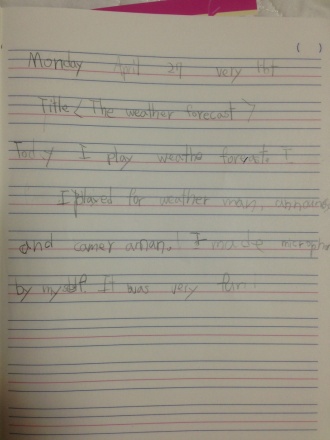 ( )
Monday April 27 very Hot
Title < The weather forecast >
Today I play weathe forcate. I
I played for weather man, announc
and camer aman.! I made microph
by myself. It was very fun!